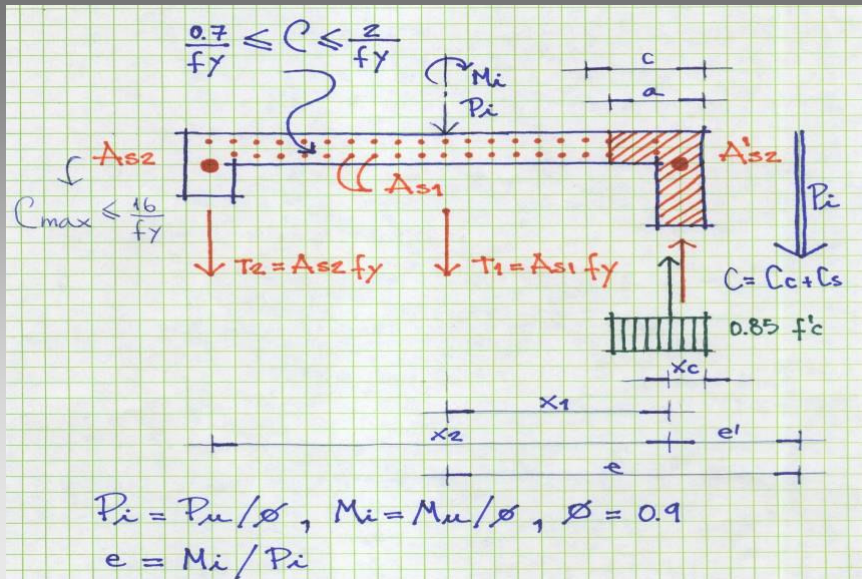 0.7/fy ≤ C ≤ 2/fy
Mi
Pi
c
a
As2
A's2
Cmax ≤ 16/fy
As1
Pi
T2 = As2 fy
T1 = As1 fy
C = Cc + Cs
0.85 f'c
xc
x1
x2
e'
e
Pi = Pu/ø, Mi = Mu/ø, ø = 0.9
e = Mi / Pi